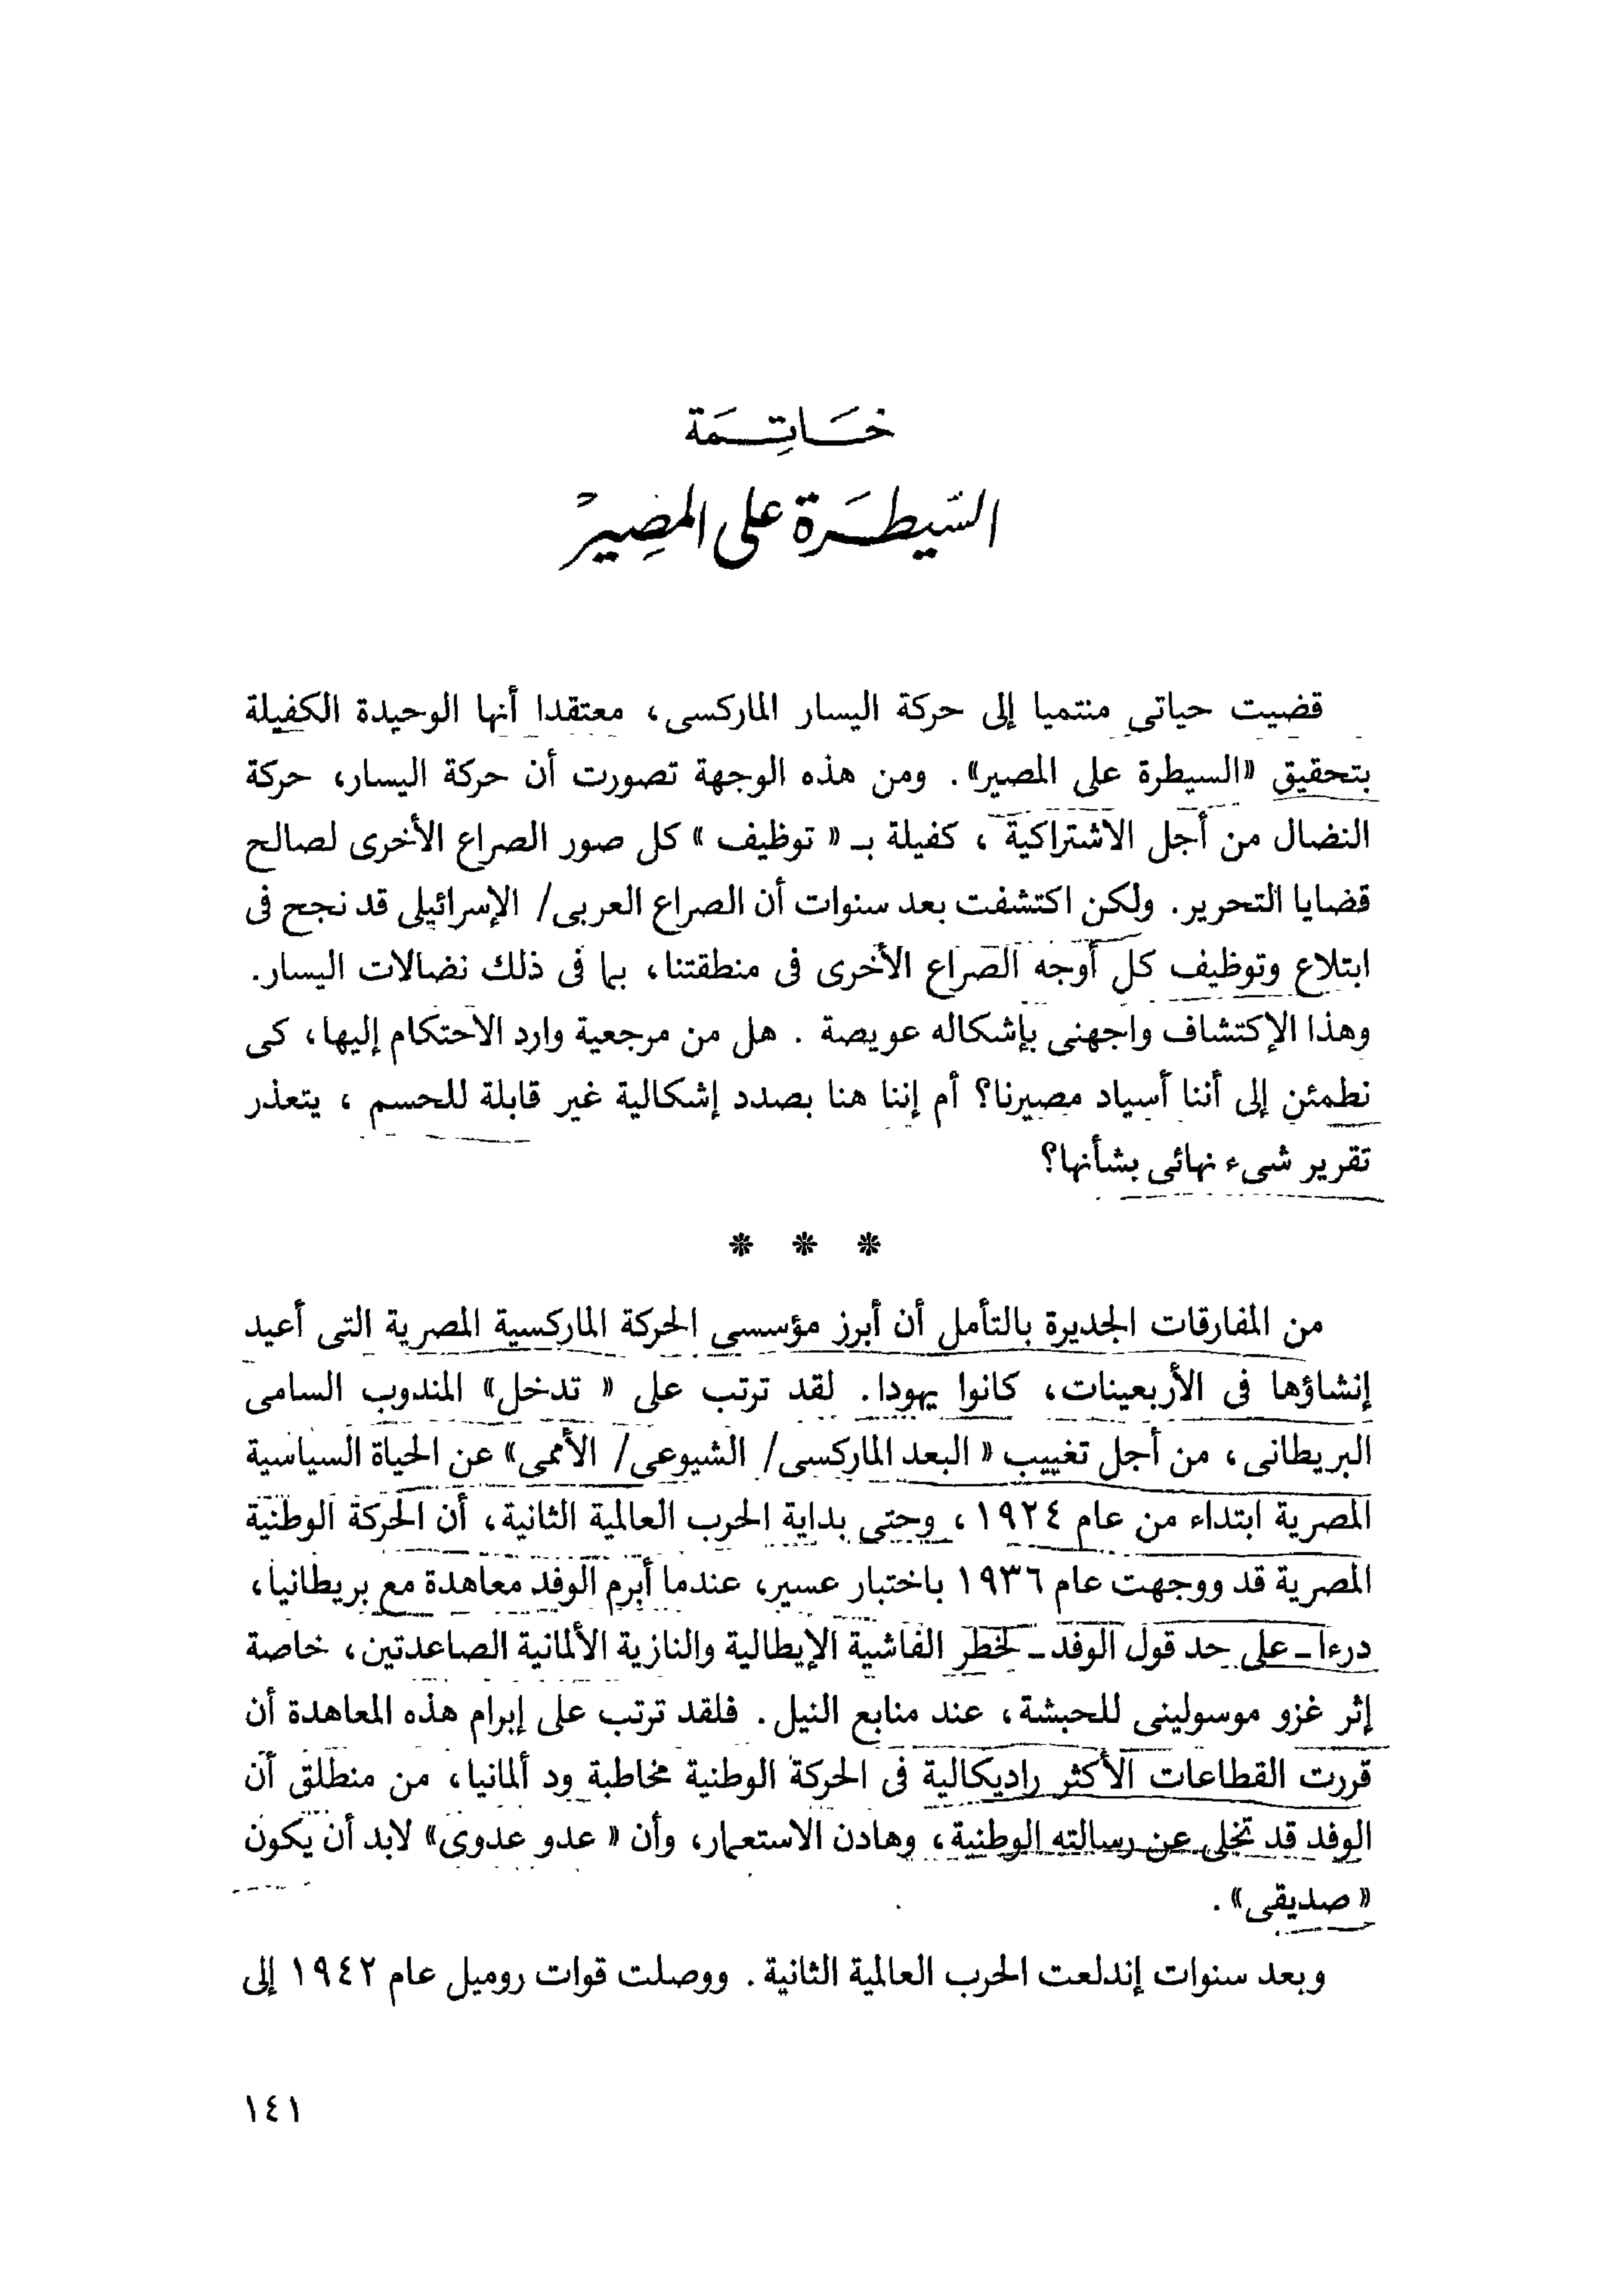 خَاتِمَة
السّيطَرة على المصِير
قضيت حياتى منتميا إلى حركة اليسار الماركسى، معتقدا أنها الوحيدة الكفيلة
بتحقيق «السيطرة على المصير». ومن هذه الوجهة تصورت أن حركة اليسار، حركة
النضال من أجل الاشتراكية ، كفيلة بـ « توظيف » كل صور الصراع الأخرى لصالح
قضايا التحرير. ولكن اكتشفت بعد سنوات أن الصراع العربى/ الإسرائيلى قد نجح فى
ابتلاع وتوظيف كل أوجه الصراع الأخرى فى منطقتنا، بما فى ذلك نضالات اليسار.
وهذا الإكتشاف واجهنى بإشكاله عويصة . هل من مرجعية وارد الاحتكام إليها، كى
نطمئن إلى أننا أسياد مصيرنا؟ أم إننا هنا بصدد إشكالية غير قابلة للحسم ، يتعذر
تقرير شىء نهائى بشأنها؟
* * *
من المفارقات الجديرة بالتأمل أن أبرز مؤسسى الحركة الماركسية المصرية التى أعيد
إنشاؤها فى الأربعينات، كانوا يهودا. لقد ترتب على « تدخل» المندوب السامى
البريطانى، من أجل تغييب « البعد الماركسى/ الشيوعى/ الأممى» عن الحياة السياسية
المصرية ابتداء من عام ١٩٢٤ ، وحتى بداية الحرب العالمية الثانية، أن الحركة الوطنية
المصرية قد ووجهت عام ١٩٣٦ باختبار عسير، عندما أبرم الوفد معاهدة مع بريطانيا،
درءا ـ على حد قول الوفد ـ لخطر الفاشية الإيطالية والنازية الألمانية الصاعدتين، خاصة
إثر غزو موسولينى للحبشة، عند منابع النيل. فلقد ترتب على إبرام هذه المعاهدة أن
قررت القطاعات الأكثر راديكالية فى الحركة الوطنية مخاطبة ود ألمانيا، من منطلق أن
الوفد قد تخلى عن رسالته الوطنية، وهادن الاستعمار، وأن « عدو عدوى» لابد أن يكون
« صديقى» .
وبعد سنوات إندلعت الحرب العالمية الثانية. ووصلت قوات روميل عام ١٩٤٢ إلى
١٤١